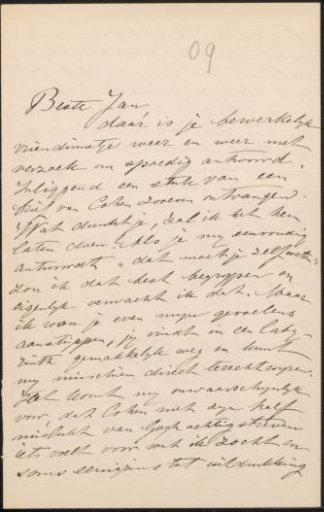 09
Beste Jan
daar is je bewerkelijk
vriendinnetje weer en weer met
verzoek om spoedig antwoord.
Inliggend een stuk van een
brief van Cohen zoeven ontvangen.
Wat dunkt je, zal ik het hem
laten doen. Als je my eenvoudig
antwoordt "dat moet je zelf weten"
zou ik dat best begrypen en
eigenlyk verwacht ik dat. Maar
ik wou je even myn gevoelens
aanstippen, jy vindt in een laby-
rinth gemakkelyk weg en kunt
my misschien direct terechtwyzen.
Het komt my onwaarschynlyk
voor dat Cohen met zyn half
mislukt van Gogh achtig streven
iets voelt voor wat ik zocht en
soms eenigzins tot uitdrukking